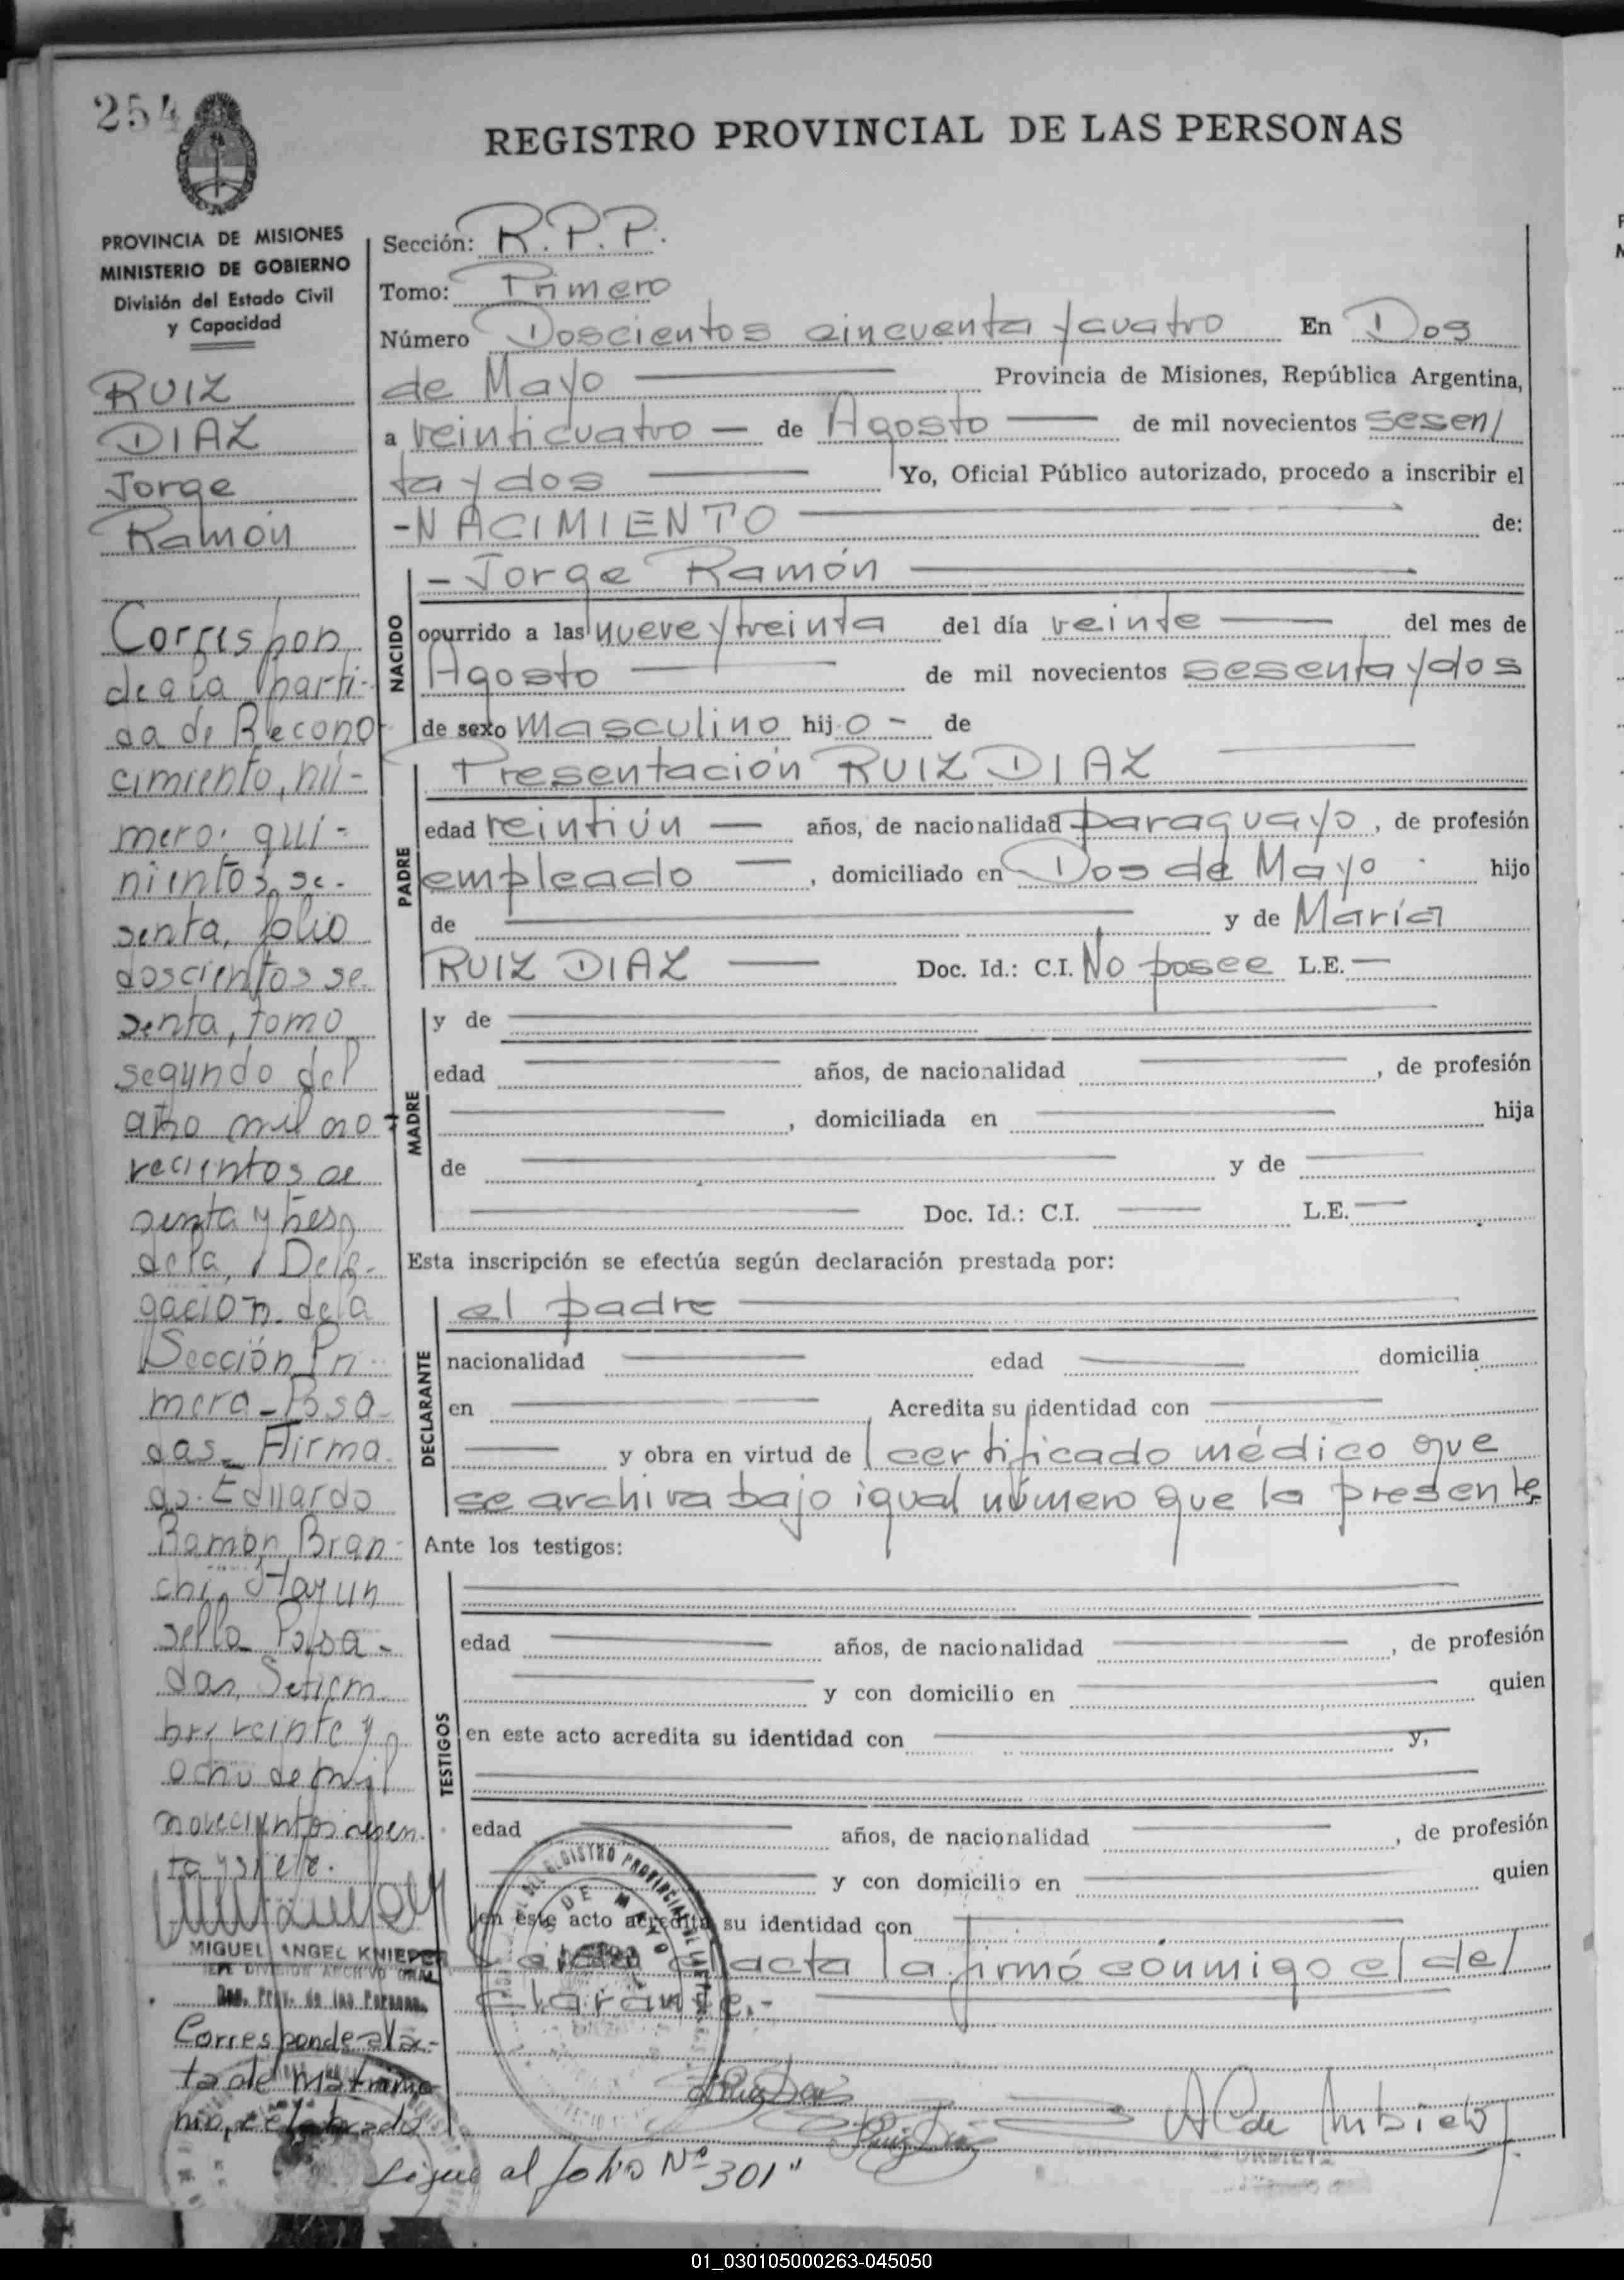 254
REGISTRO PROVINCIAL DE LAS PERSONAS
PROVINCIA DE MISIONES
MINISTERIO DE GOBIERNO
División del Estado Civil
y Capacidad
RUIZ
DIAZ
Jorge
Ramón
Correspon
de a la parti-
da de Recono
cimiento, nú-
mero: qui-
nientos se-
senta, folio
doscientos se
senta, tomo
segundo del
año mil no
vecientos se
senta y tres
de la Dele-
gación de la
Sección Pri-
mera - Posa
das - Firma
do. Eduardo
Ramón Bran-
chi. Hay un
sello Posa-
das, Setiem
bre veinte y
ocho de mil
novecientos sesen
ta y siete.
MIGUEL ANGEL KNIEPER
JEFE DIVISION ARCHIVO GRAL
Reg. Prov. de las Personas
Corresponde al ac-
ta de matrimo
nio, celebrado
Sección: R.P.P.
Tomo: Primero
Número Doscientos cincuenta y cuatro En Dos
de Mayo Provincia de Misiones, República Argentina,
a veinticuatro — de Agosto — de mil novecientos sesen/
ta y dos Yo, Oficial Público autorizado, procedo a inscribir el
-NACIMIENTO de:
NACIDO
- Jorge Ramón
ocurrido a las nueve y treinta del día veinte — del mes de
Agosto — de mil novecientos sesenta y dos
de sexo masculino hijo - de
PADRE
Presentación RUIZ DIAZ
edad veintiún — años, de nacionalidad paraguayo, de profesión
empleado —, domiciliado en Dos de Mayo hijo
de — y de María
RUIZ DIAZ — Doc. Id.: C.I. No posee L.E. —
MADRE
y de
edad años, de nacionalidad , de profesión
, domiciliada en hija
de y de
Doc. Id.: C.I. L.E.
Esta inscripción se efectúa según declaración prestada por:
DECLARANTE
el padre
nacionalidad edad domicilia
en Acredita su identidad con
y obra en virtud del certificado médico que
se archiva bajo igual número que la presente
Ante los testigos:
TESTIGOS
edad años, de nacionalidad , de profesión
y con domicilio en quien
en este acto acredita su identidad con y,
edad años, de nacionalidad , de profesión
y con domicilio en quien
en este acto acredita su identidad con
acta la firmó conmigo el de/
clarante.-
Ruiz Diaz
Ruiz Diaz
URBIETA
Sigue al folio Nº 301"
01_030105000263-045050